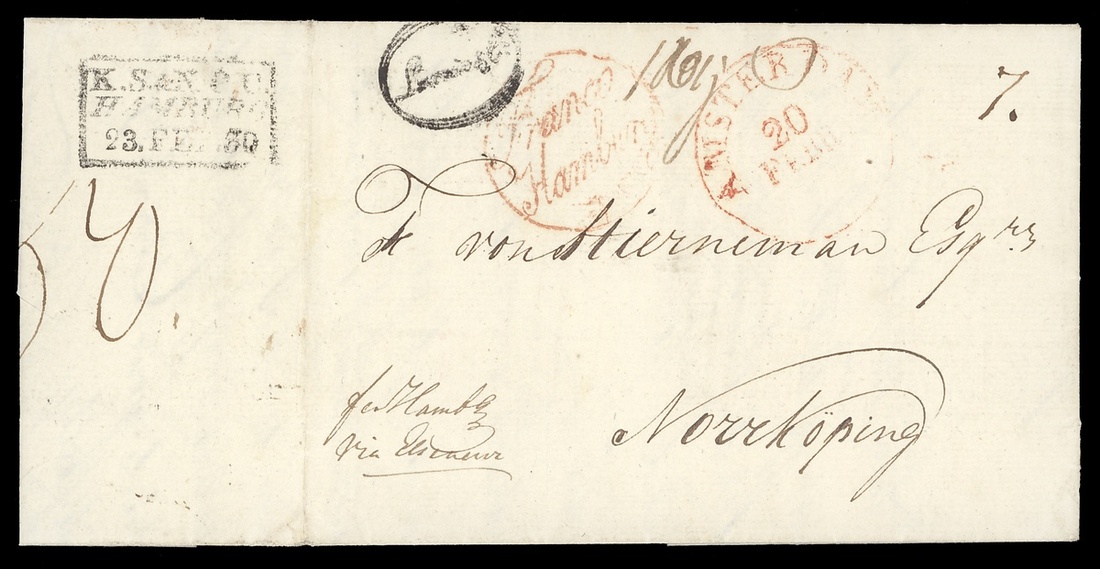 K.S.&N.P.C.
HAMBURG
23.FEB.30
Franco
Hamburg
AMSTERDAM
20
FEBR
7.
vonStierneman Esqrs
Norrköping
fco Hambg
via Elseneur